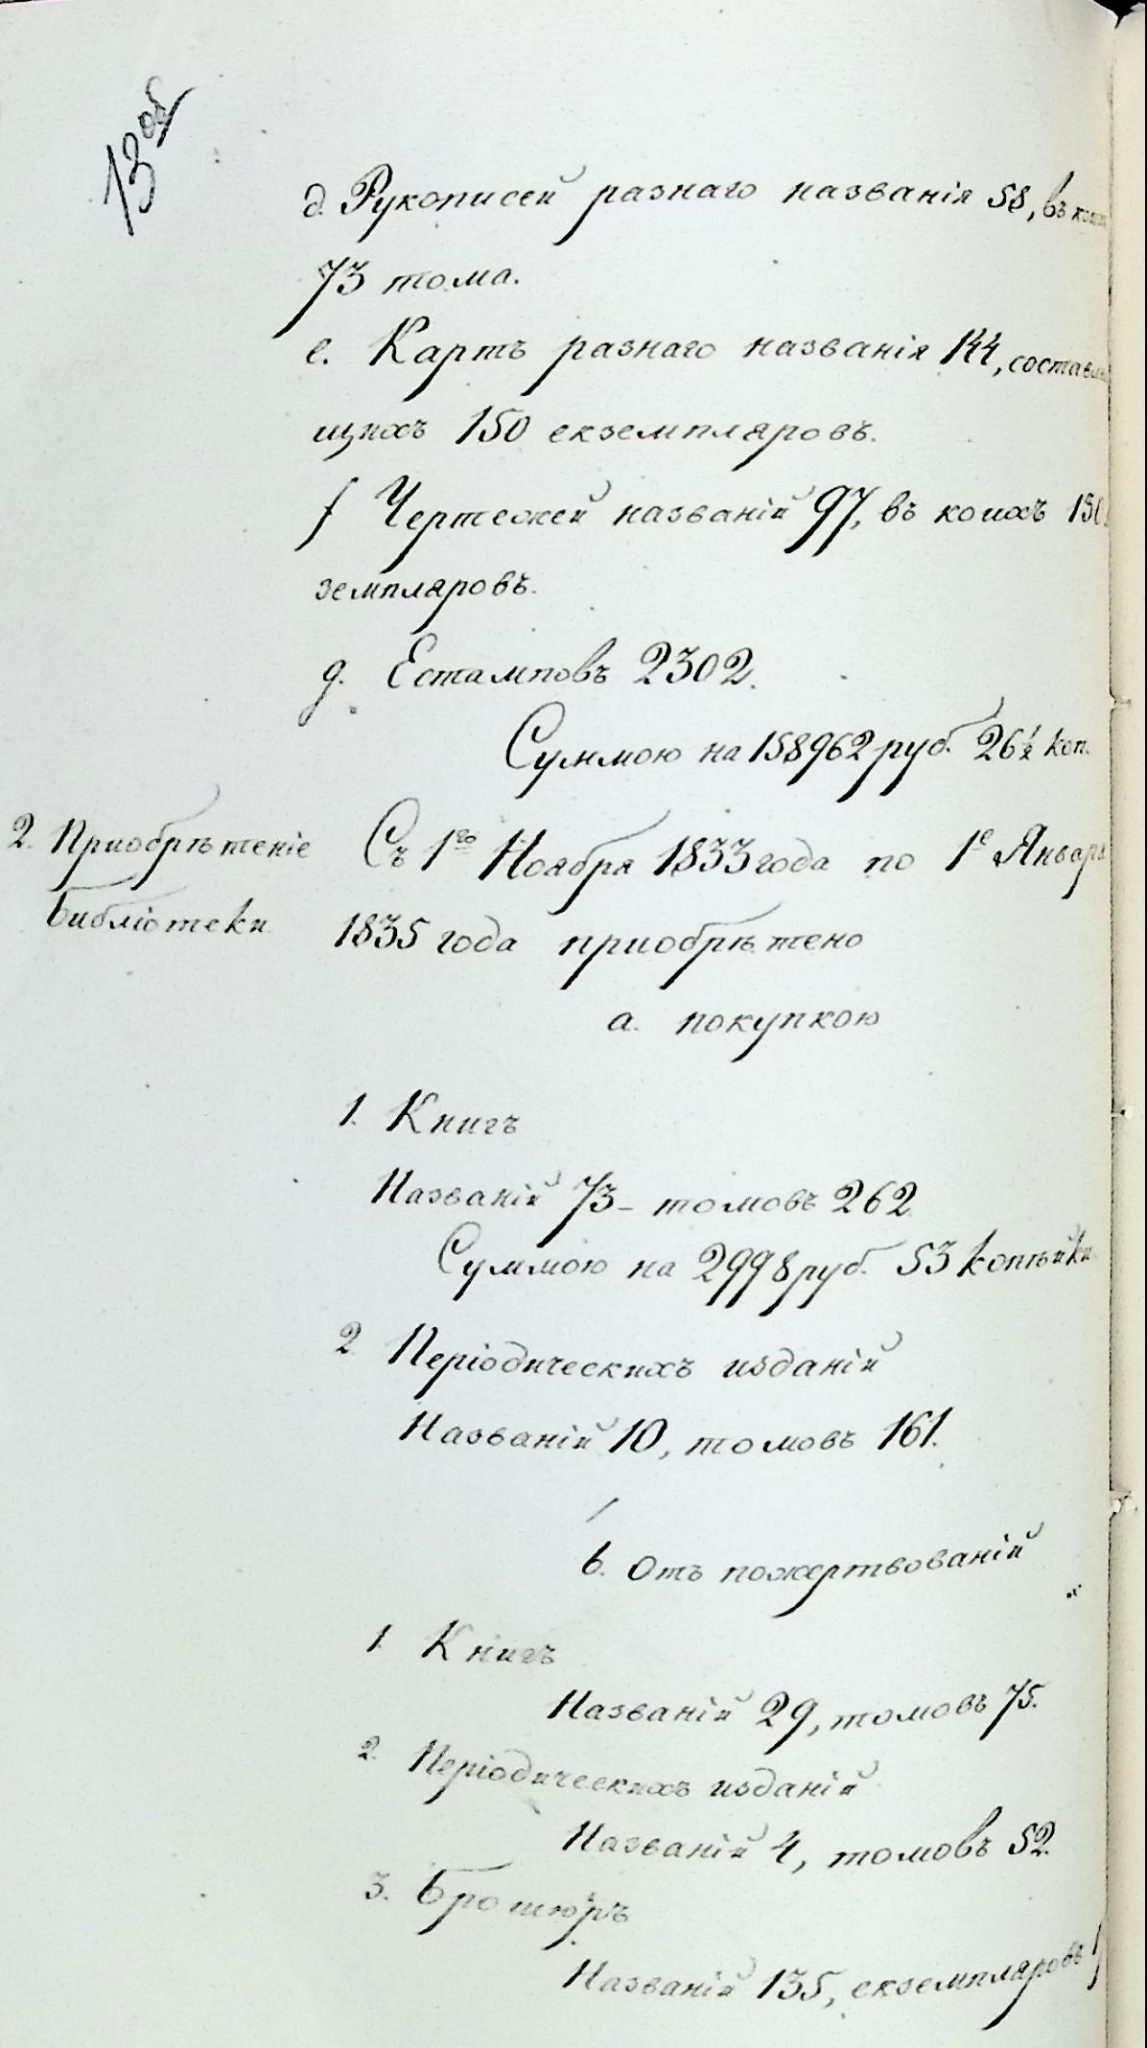 13 об
д. Рукописей разнаго названія 58, въ
73 тома.
е. Картъ разнаго названія 144, составл
щихъ 150 екземпляровъ.
f Чертежей названій 97, въ коихъ 150
земпляровъ.
g. Естамповъ 2302.
Суммою на 158962 руб. 26 1/2 коп.
2. Приобрѣтеніе
библіотеки
Съ 1го Ноября 1833 года по 1е Январь
1835 года приобрѣтено
а. покупкою
1. Книгъ
Названій 73 - томовъ 262
Суммою на 2998 руб. 53 копѣйки
2 Періодическихъ изданій
Названій 10, томовъ 161.
b. Отъ пожертвованій
1. Книгъ
Названій 29, томовъ 75.
2. Періодическихъ изданій
Названій 4, томовъ 52.
3. Брошюръ
Названій 135, екземпляровъ